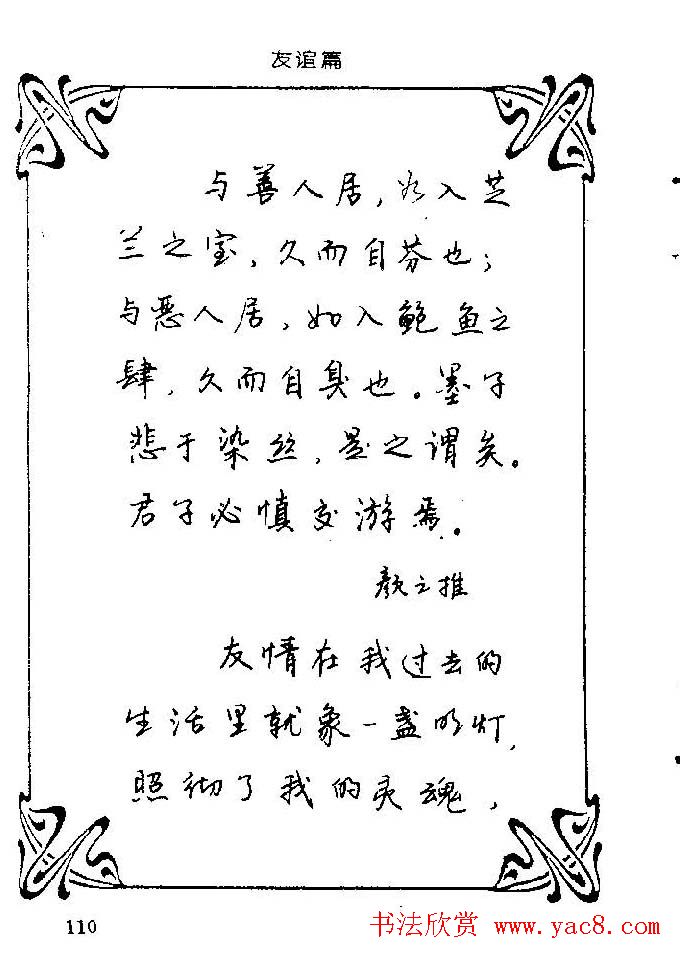 友谊篇
与善人居，如入芝
兰之室，久而自芬也；
与恶人居，如入鲍鱼之
肆，久而自臭也。墨子
悲于染丝，是之谓矣。
君子必慎交游焉。
颜之推
友情在我过去的
生活里就象一盏明灯，
照彻了我的灵魂，
110
书法欣赏 www.yac8.com